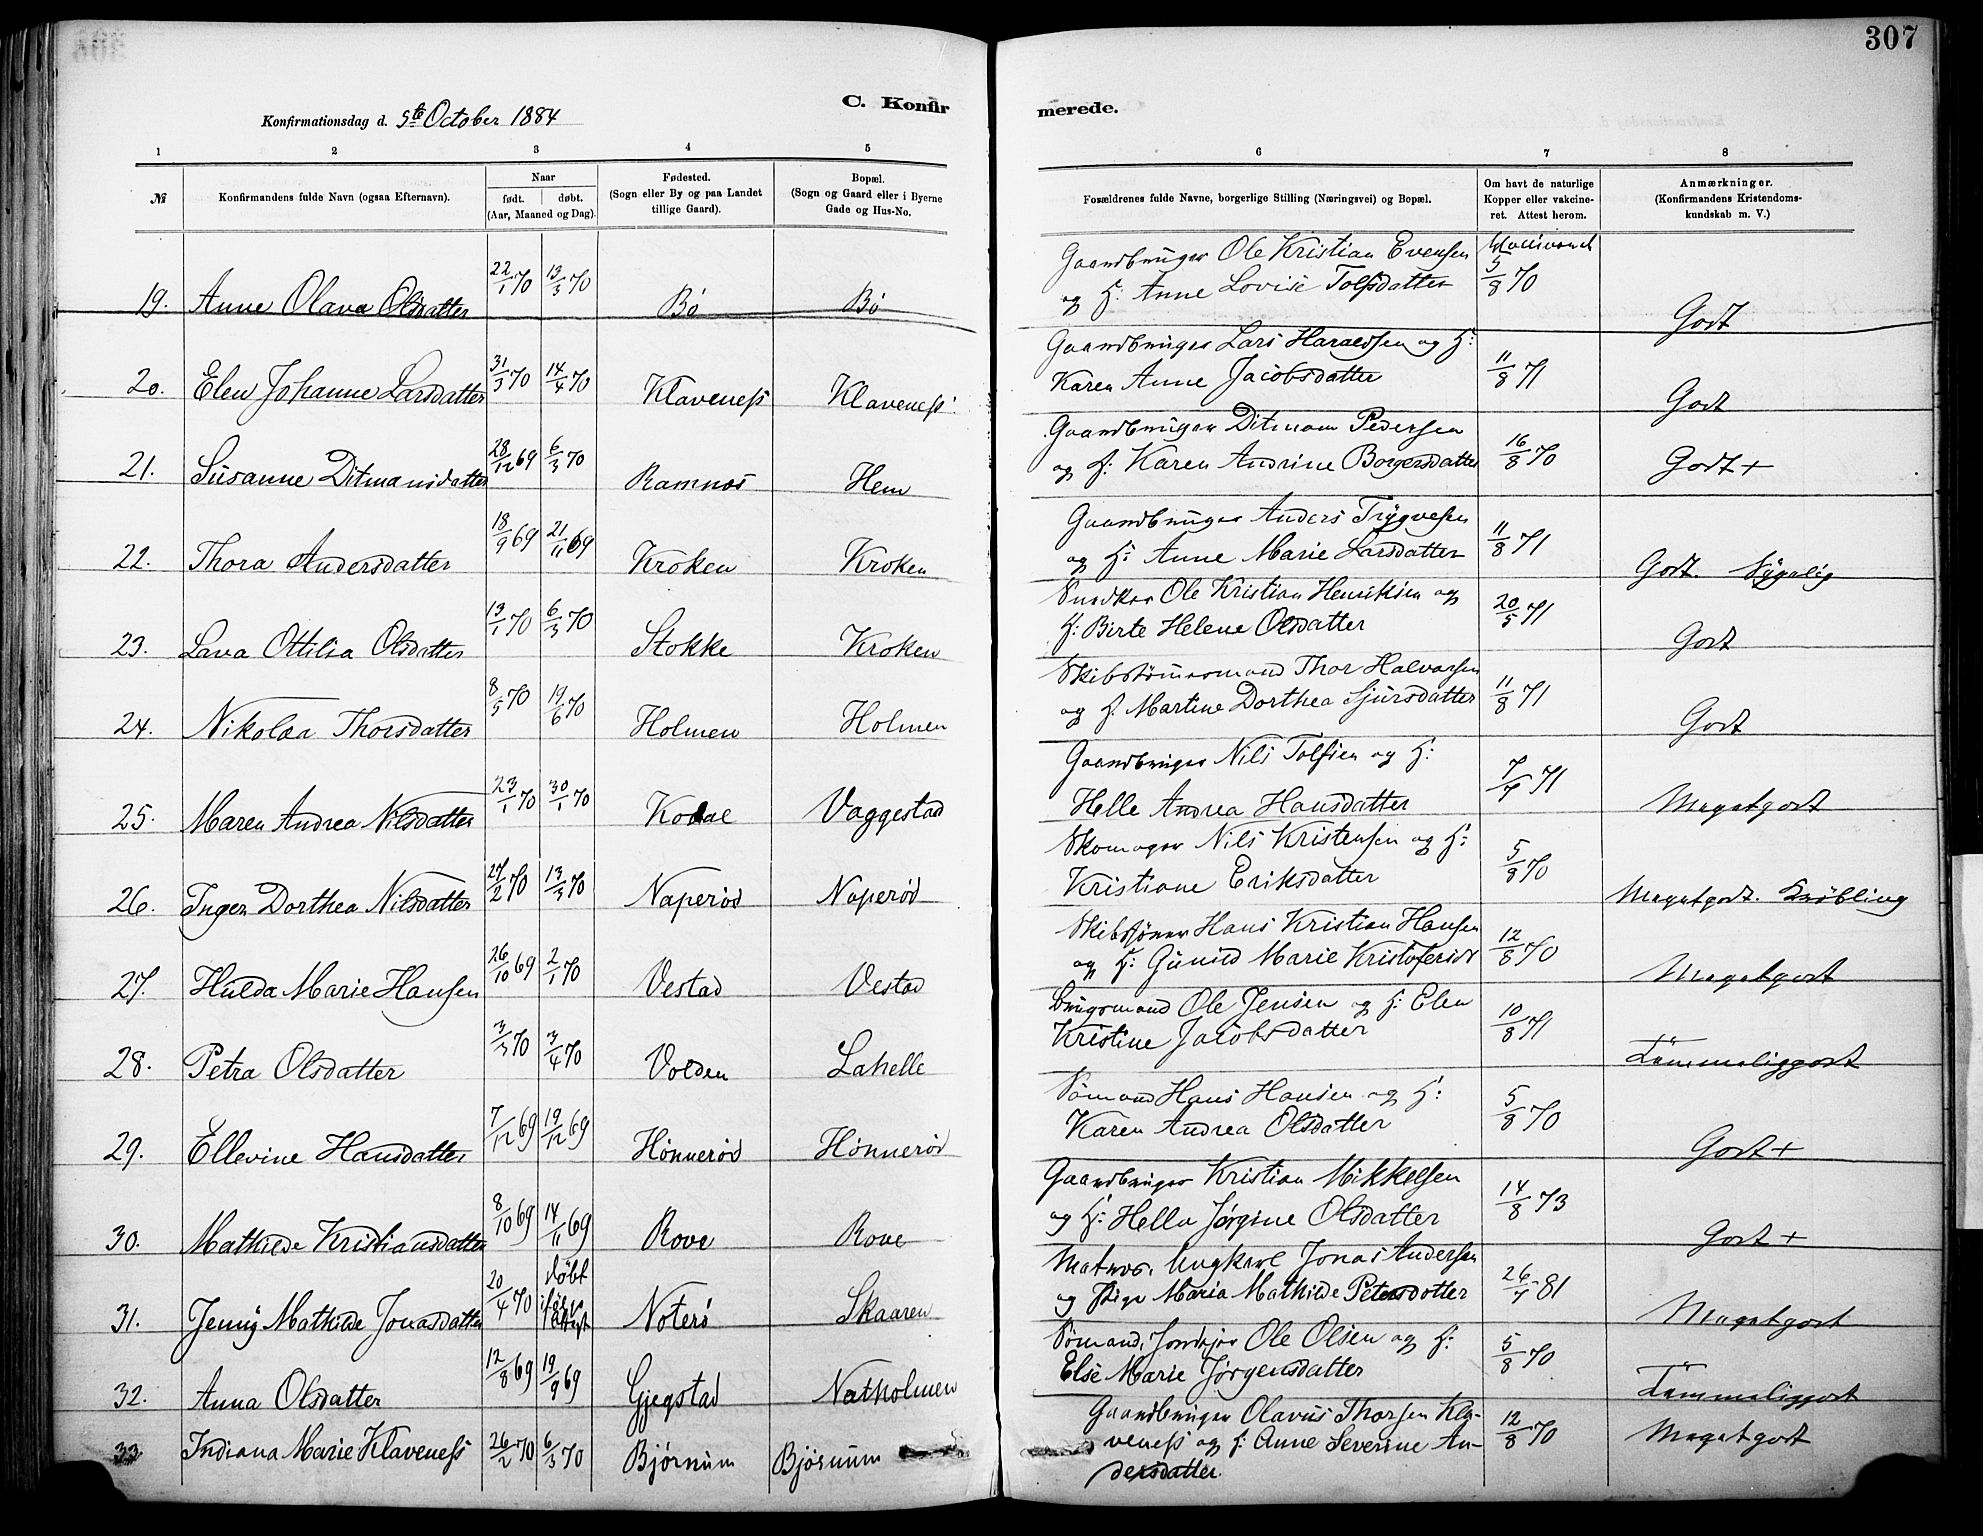 307
C. Konfirmerede.
Konfirmationsdag d. 5te October 1884
1 2 3 4 5 6 7 8
№
Konfirmandens fulde Navn (ogsaa Efternavn).
Naar
født. døbt.
(Aar, Maaned og Dag).
Fødested.
(Sogn eller By og paa Landet
tillige Gaard).
Bopæl.
(Sogn og Gaard eller i Byerne
Gade og Hus-No.
Forældrenes fulde Navne, borgerlige Stilling (Næringsvei) og Bopæl.
Om havt de naturlige
Kopper eller vakcine-
ret. Attest herom.
Anmærkninger.
(Konfirmandens Kristendoms-
kundskab m. V.)
19. Anne Olava Olsdatter 22/1 70 13/3 70 Bö Bö Gaardbruger Ole Kristian Evensen
og H: Anne Lovise Tolfsdatter 5/8 70 Godt
20. Elen Johanne Larsdatter 31/3 70 14/4 70 Klaveness Klaveness Gaardbruger Lars Haraldsen og H:
Karen Anne Jacobsdatter 11/8 71 Godt
21. Susanne Ditmansdatter 28/12 69 6/3 70 Ramnæs Hem Gaardbruger Ditman Pedersen
og H: Karen Andrine Borgersdatter 16/8 70 Godt +
22. Thora Andersdatter 18/9 69 21/11 69 Kroken Kroken Gaardbruger Anders Trygvesen
og H: Anne Marie Larsdatter 11/8 71 Godt. Sygelig
23. Lava Ottilia Olsdatter 13/1 70 6/3 70 Stokke Kroken Snedker Ole Kristian Henriksen og
H: Birte Helene Olsdatter 20/5 71 Godt
24. Nikolea Thorsdatter 8/5 70 19/6 70 Holmen Holmen Skibstømmermand Thor Halvorsen
og H. Martine Dorthea Sjursdatter 11/8 71 Godt
25. Maren Andrea Nilsdatter 23/1 70 30/1 70 Kodal Vaggestad Gaardbruger Nils Tolfsen og H:
Helle Andrea Hansdatter 7/7 71 Megetgodt
26. Inger Dorthea Nilsdatter 27/2 70 13/3 70 Naperød Naperød Skomager Nils Kristensen og H:
Kristiane Eriksdatter 5/8 70 Megetgodt. Krøbling
27. Hulda Marie Hansen 26/10 69 2/1 70 Vestad Vestad Skibsfører Hans Kristian Hansen
og H: Gunild Marie Kristofersdt 12/8 70 Megetgodt
28. Petra Olsdatter 3/3 70 3/4 70 Volden Lahelle Brugsmand Ole Jensen og H: Elen
Kristine Jacobsdatter 10/8 71 Temmeliggodt
29. Ellevine Hansdatter 7/12 69 19/12 69 Hønnerød Hønnerød Sømand Hans Hansen og H:
Karen Andrea Olsdatter 5/8 70 Godt +
30. Mathilde Kristiansdatter 8/10 69 14/11 69 Rove Rove Gaardbruger Kristian Mikkelsen
og H: Hella Jørgine Olsdatter 14/8 73 Godt +
31. Jenny Mathilde Jonasdatter 20/4 70 døbt Noterø Skaaren Matros, Ungkarl Jonas Andersen
og Pige Maria Mathilde Petersdatter 26/7 81 Megetgodt
32. Anna Olsdatter 12/8 69 19/9 69 Gjegstad Natholmen Sømand, Jordejer Ole Olsen og H:
Else Marie Jørgensdatter 5/8 70 Temmeliggodt
33. Indiana Marie Klaveness 26/2 70 6/3 70 Bjørnum Bjørnum Gaardbruger Olavus Thorsen Kla-
veness og H: Anne Severine An-
dersdatter. 12/8 70 Megetgodt